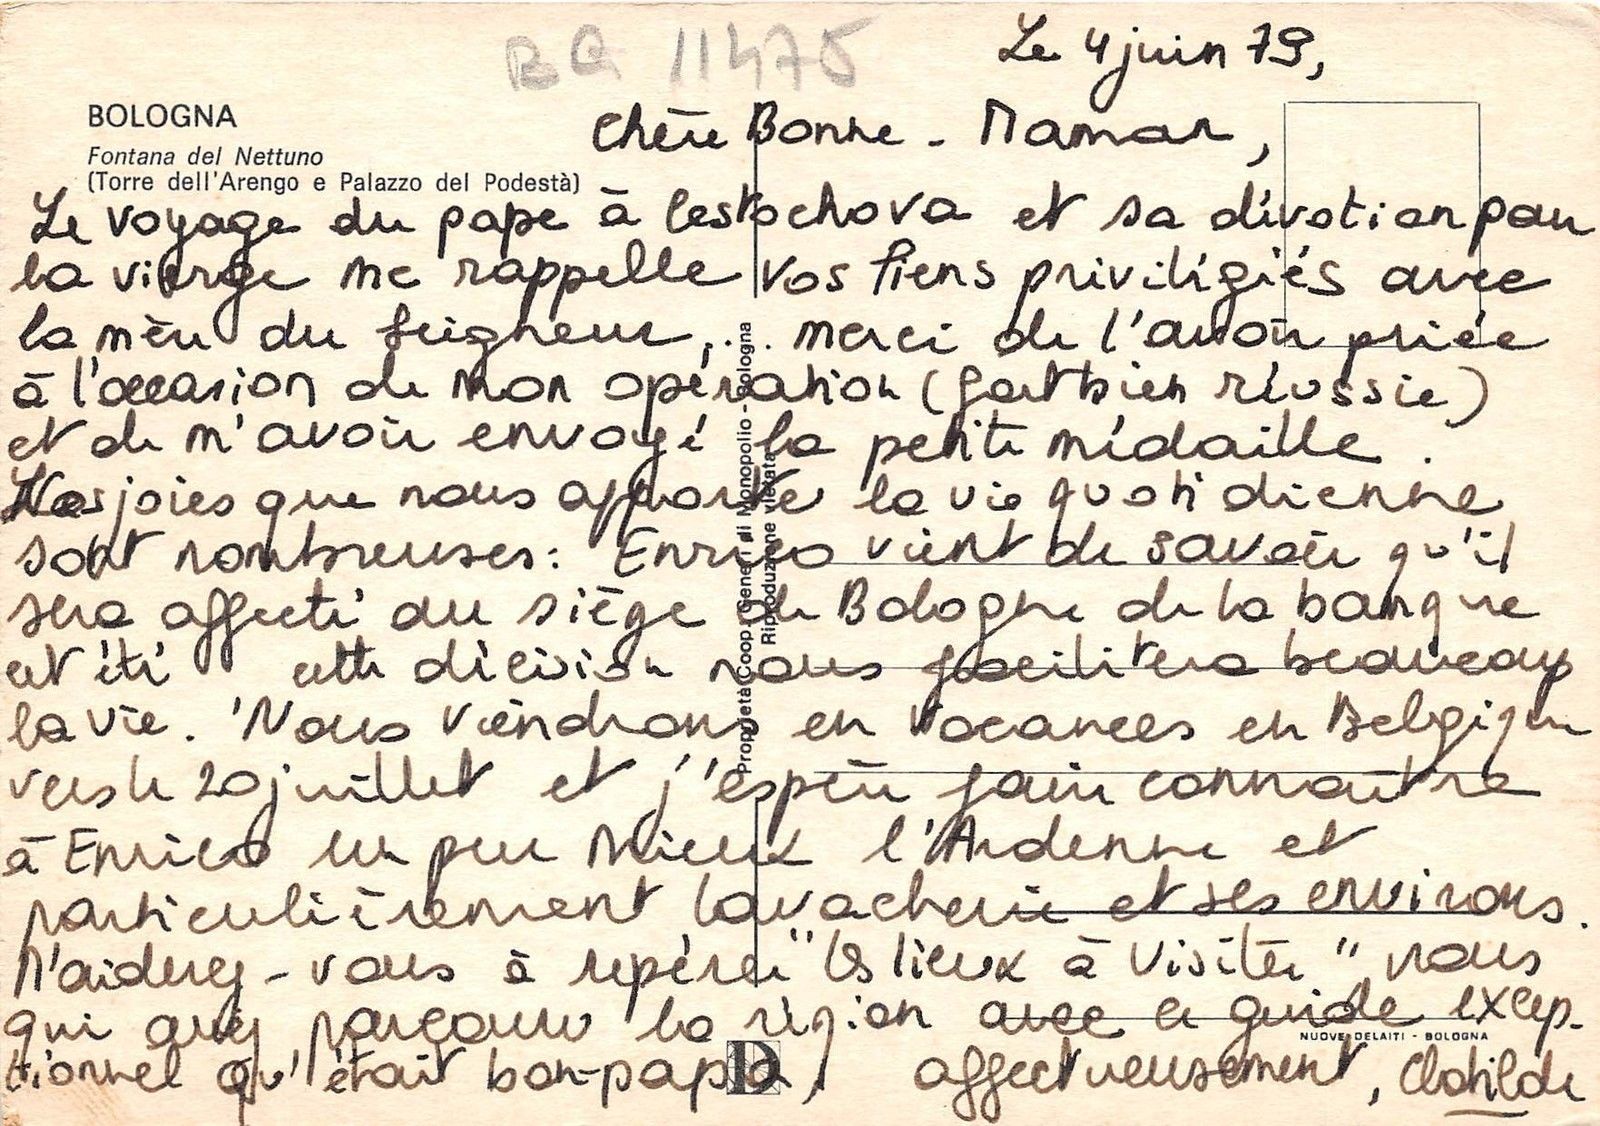 BQ 11475
Le 4 juin 79,
BOLOGNA
Fontana del Nettuno
(Torre dell'Arengo e Palazzo del Podestà)
Chère Bonne-Maman,
Le voyage du pape à Cestochova et sa dévotion pour
la vierge me rappelle vos liens priviligiés avec
la mère du Seigneur,... merci de l'avoir priée
à l'occasion de mon opération (fort bien réussie)
et de m'avoir envoyé la petite médaille.
Les joies que nous apporte la vie quotidienne
sont nombreuses: Enrico vient de savoir qu'il
sera affecté au siège de Bologne de la banque
cet été cette décision nous facilitera beaucoup
la vie. Nous viendrons en vacances en Belgique
vers le 20 juillet et j'espère faire connaître
à Enrico un peu mieux l'Ardenne et
particulièrement Lavacherie et ses environs.
M'aiderez-vous à repérer "les lieux à visiter" vous
qui avez parcouru la région avec ce guide excep-
tionnel qu'était bon-papa, affectueusement, Clotilde
Proprietà Coop. Generi di Monopolio - Bologna
Riproduzione vietata
NUOVE DELAITI - BOLOGNA
D